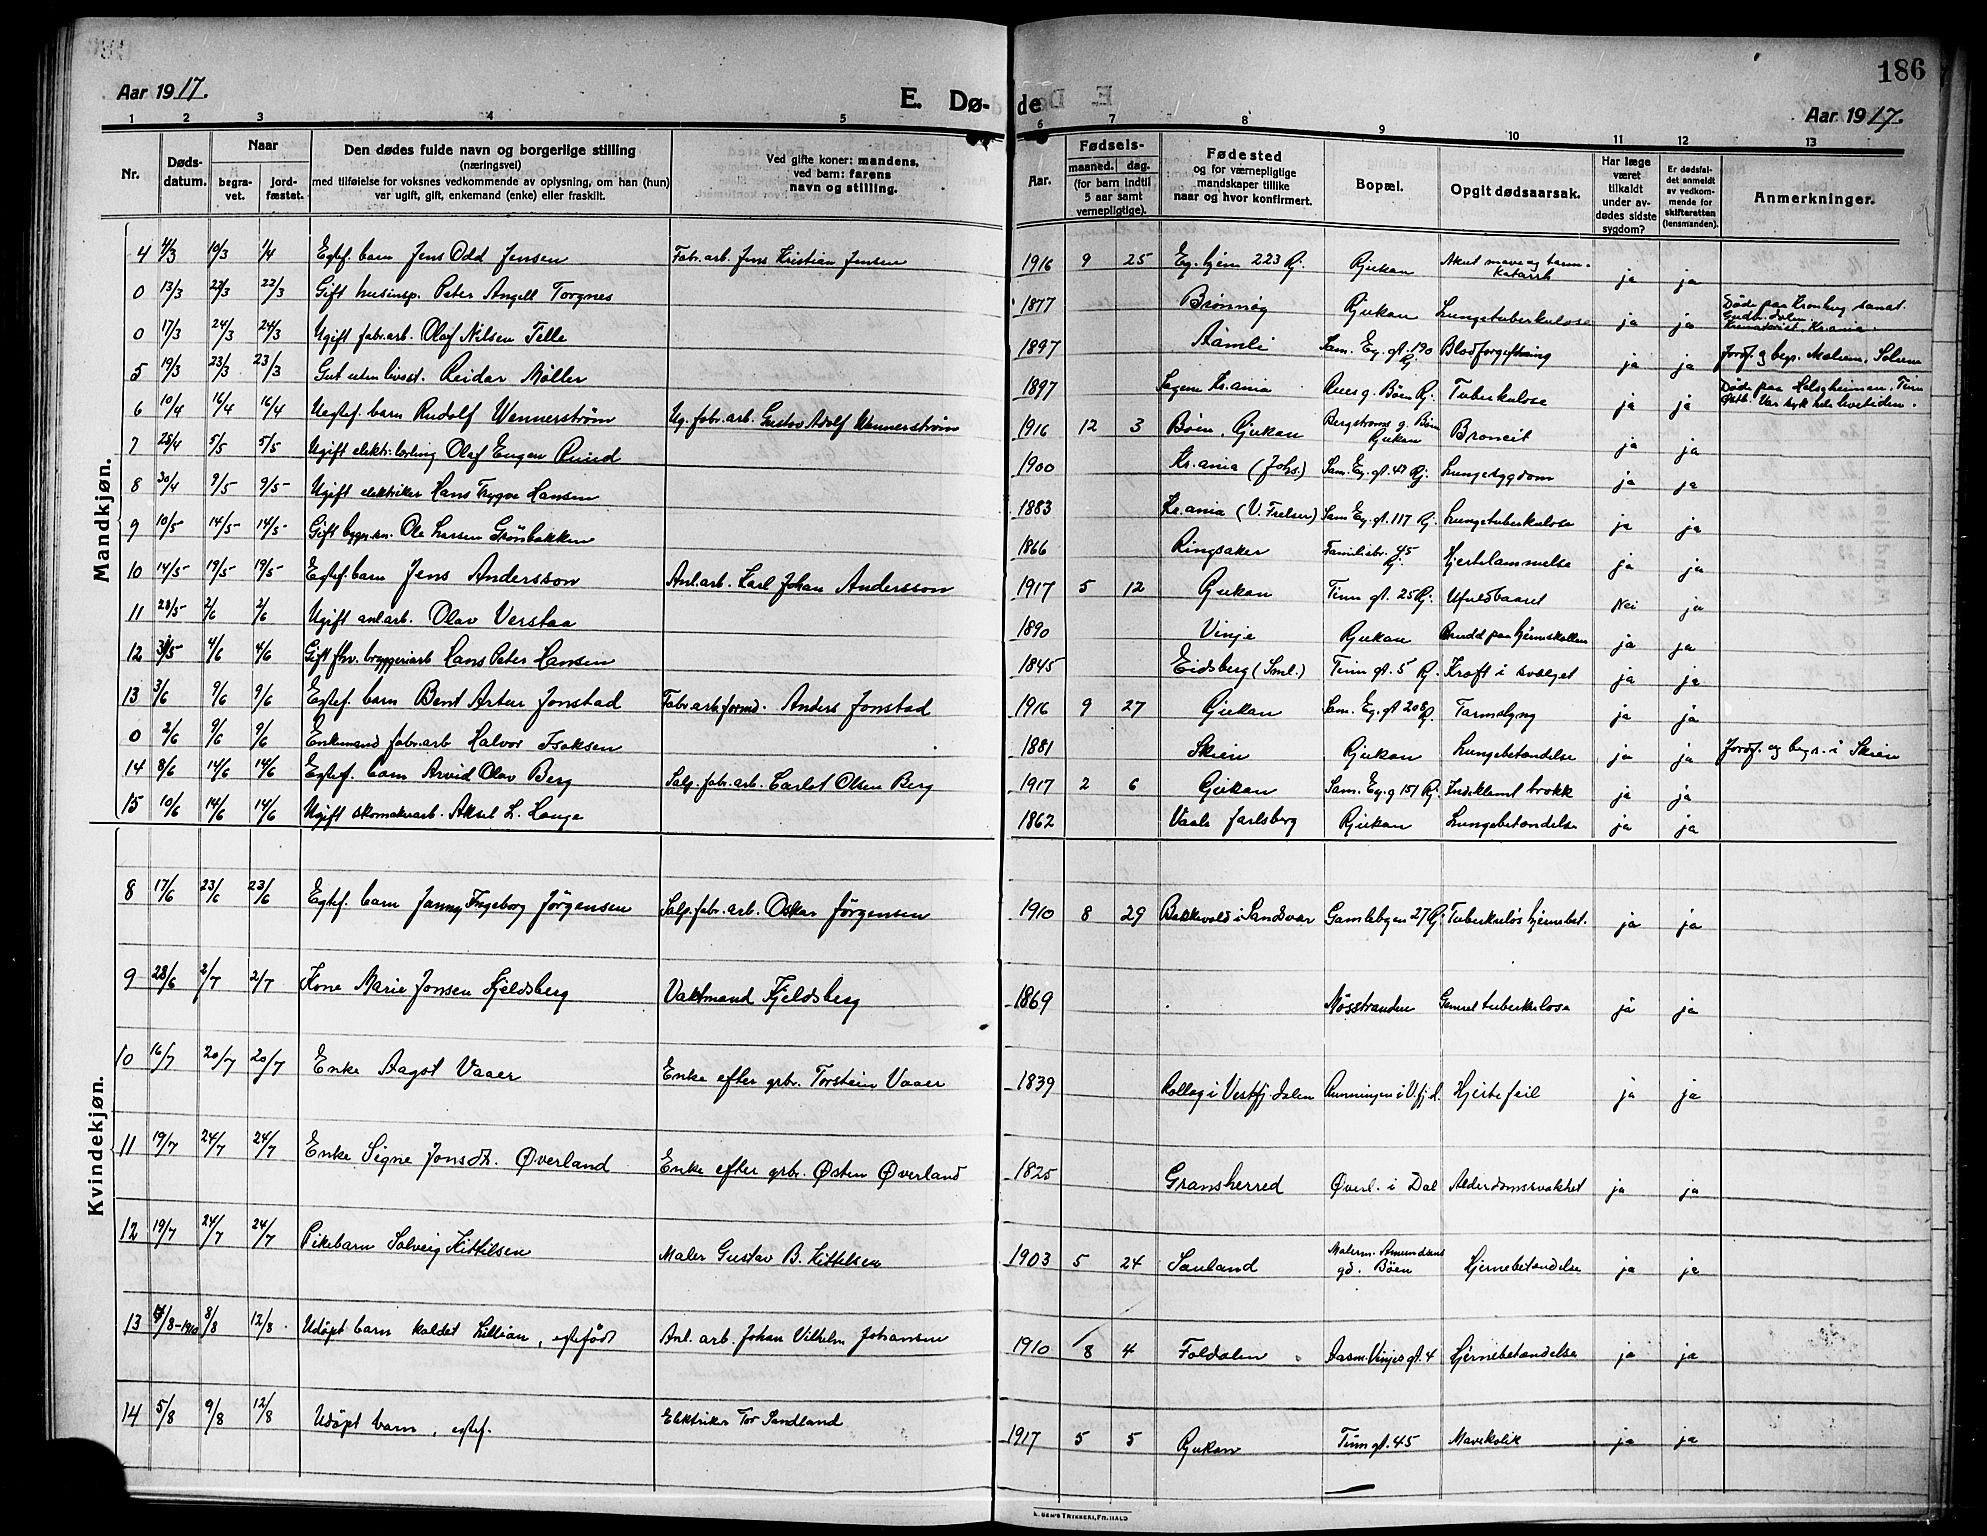 186
Aar 1917.
E. Dø-
de
Aar 1917.
1 2 3 4 5 6 7 8 9 10 11 12 13
Nr.
Døds-
datum.
Naar
begra-
vet.
jord-
fæstet.
Den dødes fulde navn og borgerlige stilling
(næringsvei)
med tilføielse for voksnes vedkommende av oplysning, om han (hun)
var ugift, gift, enkemand (enke) eller fraskilt.
Ved gifte koner: mandens,
ved barn: farens
navn og stilling.
Aar.
Fødsels-
maaned. dag.
(for barn indtil
5 aar samt
vernepligtige).
Fødested
og for værnepligtige
mandskaper tillike
naar og hvor konfirmert.
Bopæl.
Opgit dødsaarsak.
Har læge
været
tilkaldt
under av-
dødes sidste
sygdom?
Er dødsfal-
det anmeldt
av vedkom-
mende for
skifteretten
(lensmanden).
Anmerkninger.
Mandkjøn.
4 4/3 10/3 1/4 Egtef. barn Jens Odd Jensen Fabr.arb. Jens Kristian Jensen 1916 9 25 Eg. hjem 223 Rj. Rjukan Akut mave og tarm-
katarrh ja ja
0 13/3 22/3 22/3 Gift husinsp. Peter Angell Torgnes 1877 Brønnøy Rjukan Lungetuberkulose ja ja Døde paa Kornhug sanat.
Gudbr.dalen
Kremation Kr.ania.
0 17/3 24/3 24/3 Ugift fabr.arb. Olaf Nilsen Telle 1897 Aamli Sam. Eg. gt. 190 Rj. Blodforgiftning ja ja Jordf. og begr.
5 19/3 23/3 23/3 Gut uten livsst. Reidar Møller 1897 Sagene Kr.ania Rues g. Bøen Rj. Tuberkulose ja ja Døde paa Helgheimen, Tinn
Var syk hele livetiden.
6 10/4 16/4 16/4 Uegtef. barn Rudolf Wennerstrøm Ug. fabr.arb. Gustav Adolf Wennerstrøm 1916 12 3 Bøen, Rjukan Bergstrøms g. Bøen
Rjukan Broncit ja ja
7 28/4 5/5 5/5 Ugift elektr.lærling Olaf Eugen Ruud 1900 Kr.ania (Johs.) Sam. Eg. gt. 47 Rj. Lungesygdom ja ja
8 30/4 9/5 9/5 Ugift elektriker Hans Trygve Hansen 1883 Kr.ania Sam Eg. gt. 117 Rj. Lungetuberkulose ja ja
9 10/5 14/5 14/5 Gift bygn.sn. Ole Larsen Grønbakken 1866 Ringsaker Familiebr. 45
Rj. Hjertelammelse ja ja
10 14/5 19/5 19/5 Egtef. barn Jens Andersson Anl.arb. Karl Johan Andersson 1917 5 12 Rjukan Tinn gt. 25 Rj. Ufuldbaaret Nei ja
11 28/5 2/6 2/6 Ugift anl.arb. Olav Verstaa 1890 Vinje Rjukan Brudd paa hjerneskallen ja ja
12 31/5 4/6 4/6 Gift fhv. bryggeriarb Hans Peter Hansen 1845 Eidsberg (Sml.) Tinn gt. 5 Rj. Kræft i svælget ja ja
13 3/6 9/6 9/6 Egtef. barn Bent Artur Jonstad Fabr.arb.formd. Anders Jonstad 1916 9 27 Rjukan Sam. Eg. gt 208 Rj. Tarmslyng ja ja
0 2/6 9/6 9/6 Enkemand fabr.arb Halvor Isaksen 1881 Skien Rjukan Lungebetændelse ja ja Jordf. og begr. i Skien
14 8/6 14/6 14/6 Egtef. barn Arvid Olav Berg Salp. fabr.arb. Carlot Olsen Berg 1917 2 6 Rjukan Sam. Eg. g 151 Rj. Indeklemt brokk ja ja
15 10/6 14/6 14/6 Ugift skomakerarb. Aksel L. Hauge 1862 Vaale Jarlsberg Rjukan Lungebetændelse ja ja
Kvindekjøn.
8 17/6 23/6 23/6 Egtef. barn Janny Ingeborg Jørgensen Salp. fabr. arb. Oskar Jørgensen 1910 8 29 Bakkevold i Sandsvær Gamlebyen 27 Rj Tuberkuløs hjernebet. ja ja
9 28/6 2/7 2/7 Kone Marie Jonsen Fjeldsberg Vaktmand Fjeldsberg 1869 Møsstranden Gamel tuberkulose ja ja
10 16/7 20/7 20/7 Enke Aagot Vaaer Enke efter grbr. Torstein Vaaer 1839 Rollag i Vestfj.dalen Runningen i V.fj.d. Hjertefeil ja ja
11 19/7 24/7 24/7 Enke Signe Jonsdt. Øverland Enke efter grbr. Østen Øverland 1825 Gransherred Øverl. i Dal Alderdomssvakhet ja ja
12 19/7 24/7 24/7 Pikebarn Solveig Kittilsen Maler Gustav B. Kittelsen 1903 5 24 Sauland Malerm. Amundsens
gd. Bøen Hjernebetændelse ja ja
13 4/8-1910 8/8 12/8 Udøpt barn kaldet Lillian, egtefødt Anl. arb. Johan Vilhelm Johansen 1910 8 4 Foldalen Aasm. Vinjes gt. 4 Hjernebetændelse ja ja
14 5/8 9/8 12/8 Udøpt barn, egtef. Elektriker Tor Sandland 1917 5 5 Rjukan Tinn gt. 45 Mavekolik ja ja